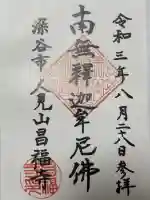 令和三年八月二八日参拝
南無釋迦牟尼佛
深谷市人見山昌福寺